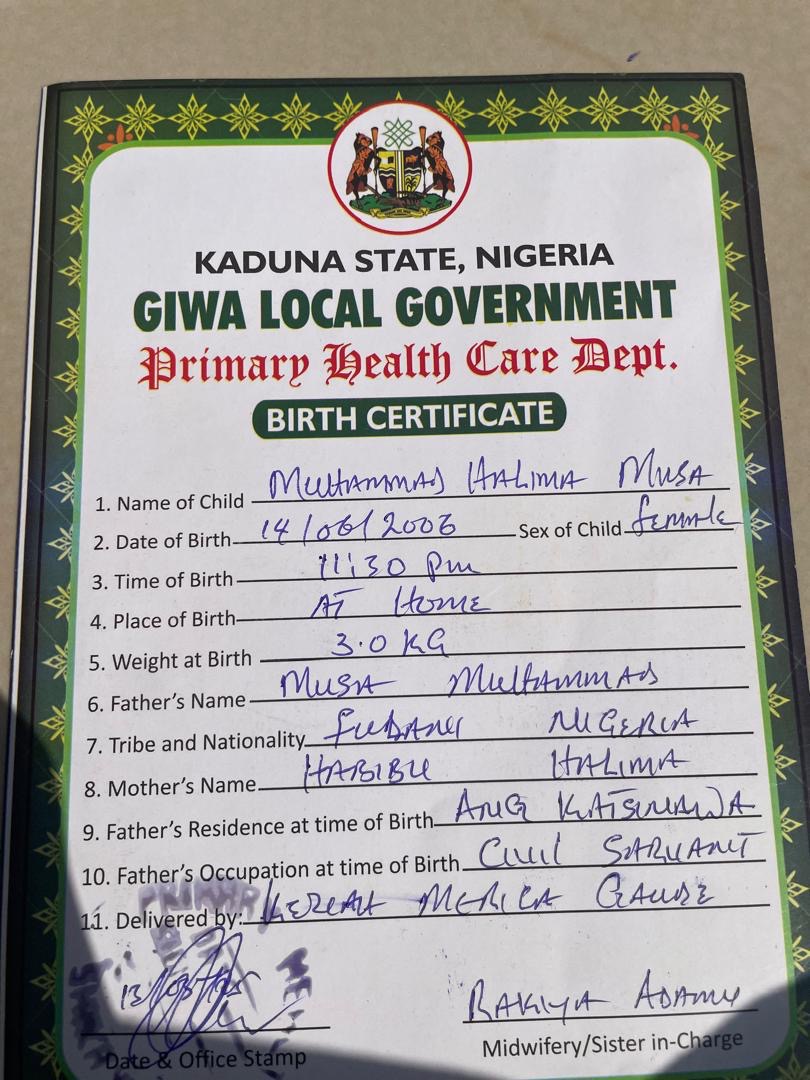 KADUNA STATE, NIGERIA
GIWA LOCAL GOVERNMENT
Primary Health Care Dept.
BIRTH CERTIFICATE
1. Name of Child MUHAMMAD HALIMA MUSA
2. Date of Birth 14/06/2006 Sex of Child female
3. Time of Birth 11:30 Pm
4. Place of Birth AT HOME
5. Weight at Birth 3.0 KG
6. Father's Name MUSA MUHAMMAD
7. Tribe and Nationality FULANI NIGERIA
8. Mother's Name HABIBU HALIMA
9. Father's Residence at time of Birth ANG KATSINAWA
10. Father's Occupation at time of Birth CIVIL SARVANT
11. Delivered by:
RAKIYA ADAMU
Date & Office Stamp Midwifery/Sister in-Charge